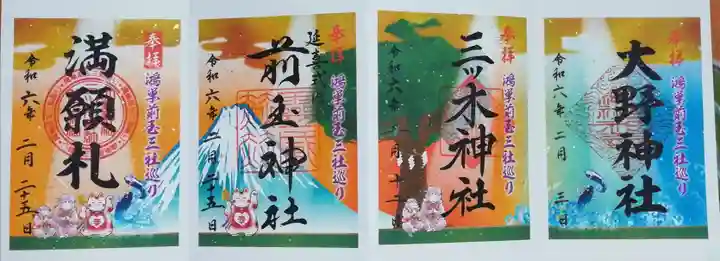 奉拝
大野神社
鴻巣前玉三社巡り
令和六年 二月 三日
奉拝
三ッ木神社
鴻巣前玉三社巡り
令和六年 二月 十二日
奉拝
延喜式
前玉神社
鴻巣前玉三社巡り
令和六年 二月 二十五日
奉拝
満願札
鴻巣前玉三社巡り
令和六年 二月 二十五日